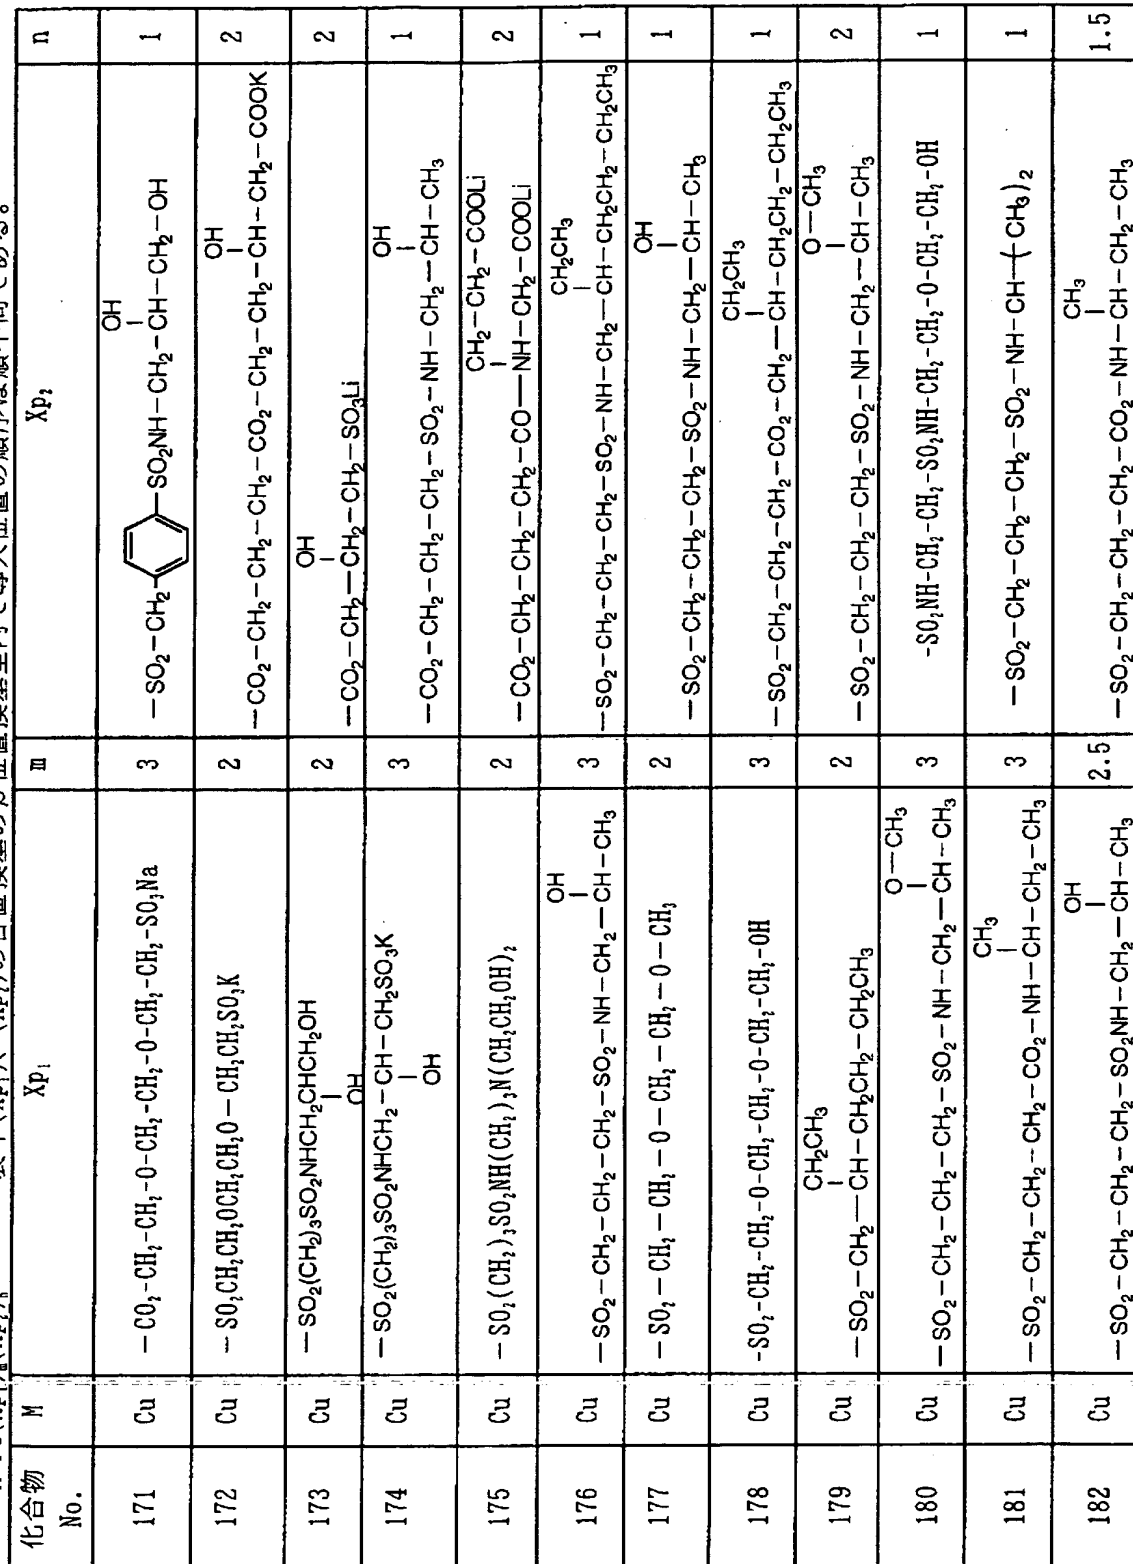 化合物No. M Xp₁ m Xp₂ n
171 Cu －CO₂-CH₂-CH₂-O-CH₂-CH₂-O-CH₂-CH₂-SO₃Na 3 －SO₂－CH₂－ －SO₂NH－CH₂－CH(OH)－CH₂－OH 1
172 Cu －SO₂CH₂CH₂OCH₂CH₂O－CH₂CH₂SO₃K 2 －CO₂－CH₂－CH₂－CH₂－CO₂－CH₂－CH₂－CH(OH)－CH₂－COOK 2
173 Cu －SO₂(CH₂)₃SO₂NHCH₂CHCH₂OH OH 2 －CO₂－CH₂－CH₂－CH₂－SO₃Li OH 2
174 Cu －SO₂(CH₂)₃SO₂NHCH₂－CH－CH₂SO₃K OH 3 －CO₂－CH₂－CH₂－CH₂－SO₂－NH－CH₂－CH(OH)－CH₃ 1
175 Cu －SO₂(CH₂)₃SO₂NH(CH₂)₃N(CH₂CH₂OH)₂ 2 －CO₂－CH₂－CH₂－CH₂－CO－NH－CH₂－COOLi CH₂－CH₂－COOLi 2
176 Cu －SO₂－CH₂－CH₂－CH₂－SO₂－NH－CH₂－CH(OH)－CH₃ 3 －SO₂－CH₂－CH₂－CH₂－SO₂－NH－CH₂－CH(CH₂CH₃)－CH₂CH₂－CH₂CH₃ 1
177 Cu －SO₂－CH₂－CH₂－O－CH₂－CH₂－O－CH₃ 2 －SO₂－CH₂－CH₂－CH₂－SO₂－NH－CH₂－CH(OH)－CH₃ 1
178 Cu -SO₂-CH₂-CH₂-O-CH₂-CH₂-O-CH₂-CH₂-OH 3 －SO₂－CH₂－CH₂－CH₂－CO₂－CH₂－CH(CH₂CH₃)－CH₂CH₂－CH₂CH₃ 1
179 Cu －SO₂－CH₂－CH(CH₂CH₃)－CH₂CH₂－CH₂CH₃ 2 －SO₂－CH₂－CH₂－CH₂－SO₂－NH－CH₂－CH(O－CH₃)－CH₃ 2
180 Cu －SO₂－CH₂－CH₂－CH₂－SO₂－NH－CH₂－CH(O－CH₃)－CH₃ 3 -SO₂NH-CH₂-CH₂-SO₂NH-CH₂-CH₂-O-CH₂-CH₂-OH 1
181 Cu －SO₂－CH₂－CH₂－CH₂－CO₂－NH－CH(CH₃)－CH₂－CH₃ 3 －SO₂－CH₂－CH₂－CH₂－SO₂－NH－CH－(CH₃)₂ 1
182 Cu －SO₂－CH₂－CH₂－CH₂－SO₂NH－CH₂－CH(OH)－CH₃ 2.5 －SO₂－CH₂－CH₂－CH₂－CO₂－NH－CH(CH₃)－CH₂－CH₃ 1.5